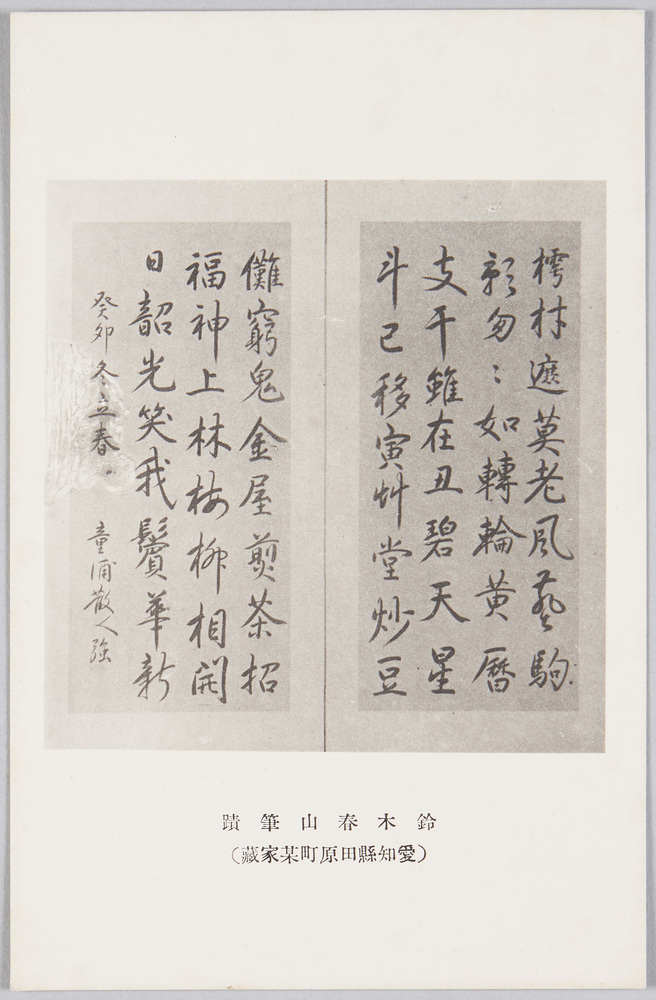 樗材遮莫老風塵駒
影匆々如轉輪黄曆
支干雖在丑碧天星
斗已移寅艸堂炒豆
儺窮鬼金屋煎茶招
福神上林梅柳相開
日韶光笑我鬢華新
癸卯冬立春。 童浦散人強
鈴木春山筆蹟
(愛知縣田原町某家藏)